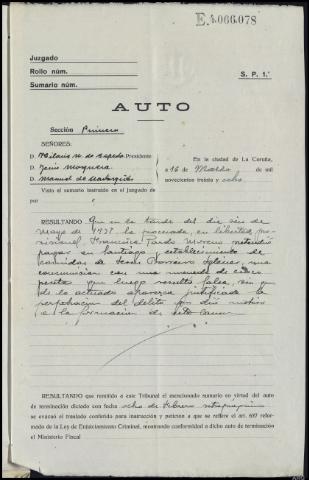 E.4.066.078
Juzgado
Rollo núm.
Sumario núm.
S. P. 1.ª
AUTO
Sección Primera
SEÑORES:
D. Presidente
D. Jesús Mosquera
D. Manuel de
En la ciudad de La Coruña,
a 16 de Marzo de mil
novecientos treinta y ocho
Visto el sumario instruido en el juzgado de
por
RESULTANDO Que en la tarde del día seis de
mayo de 1937 la procesada, en libertad pro-
visional, Francisca Pardo Moreno
pagar en Santiago y establecimiento de
comidas de Jesús Iglesias, una
consumición con una moneda de cinco
pesetas que luego resultó falsa, sin que
de lo actuado aparezca justificada la
perpetración del delito que dio motivo
a la formación de esta causa
RESULTANDO que remitido a este Tribunal el mencionado sumario en virtud del auto
de terminación dictado con fecha ocho de Febrero
se evacuó el traslado conferido para instrucción y petición a que se refiere el art. 627 refor-
mado de la Ley de Enjuiciamiento Criminal, mostrando conformidad a dicho auto de terminación
el Ministerio Fiscal